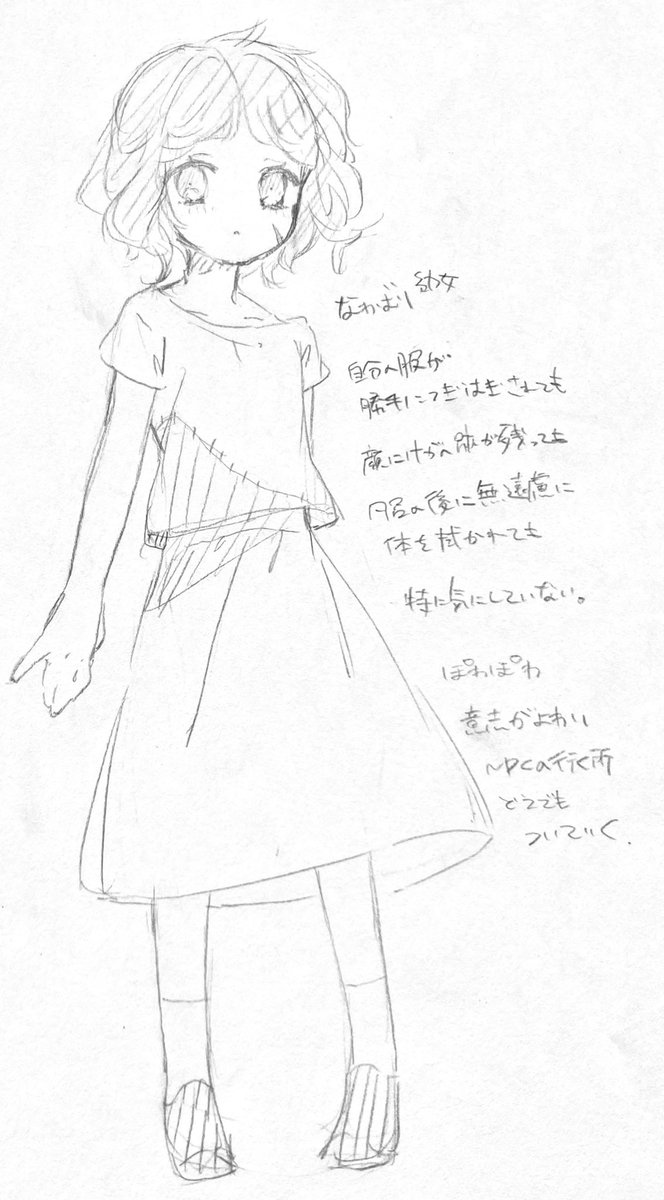 なかばり幼女
自分の服が
勝手につぎはぎされても
顔にけがの跡が残っても
風呂の後に無遠慮に
体を拭かれても
特に気にしていない。
ぽわぽわ
意志がよわい
NPCの行く所
どこでも
ついていく.